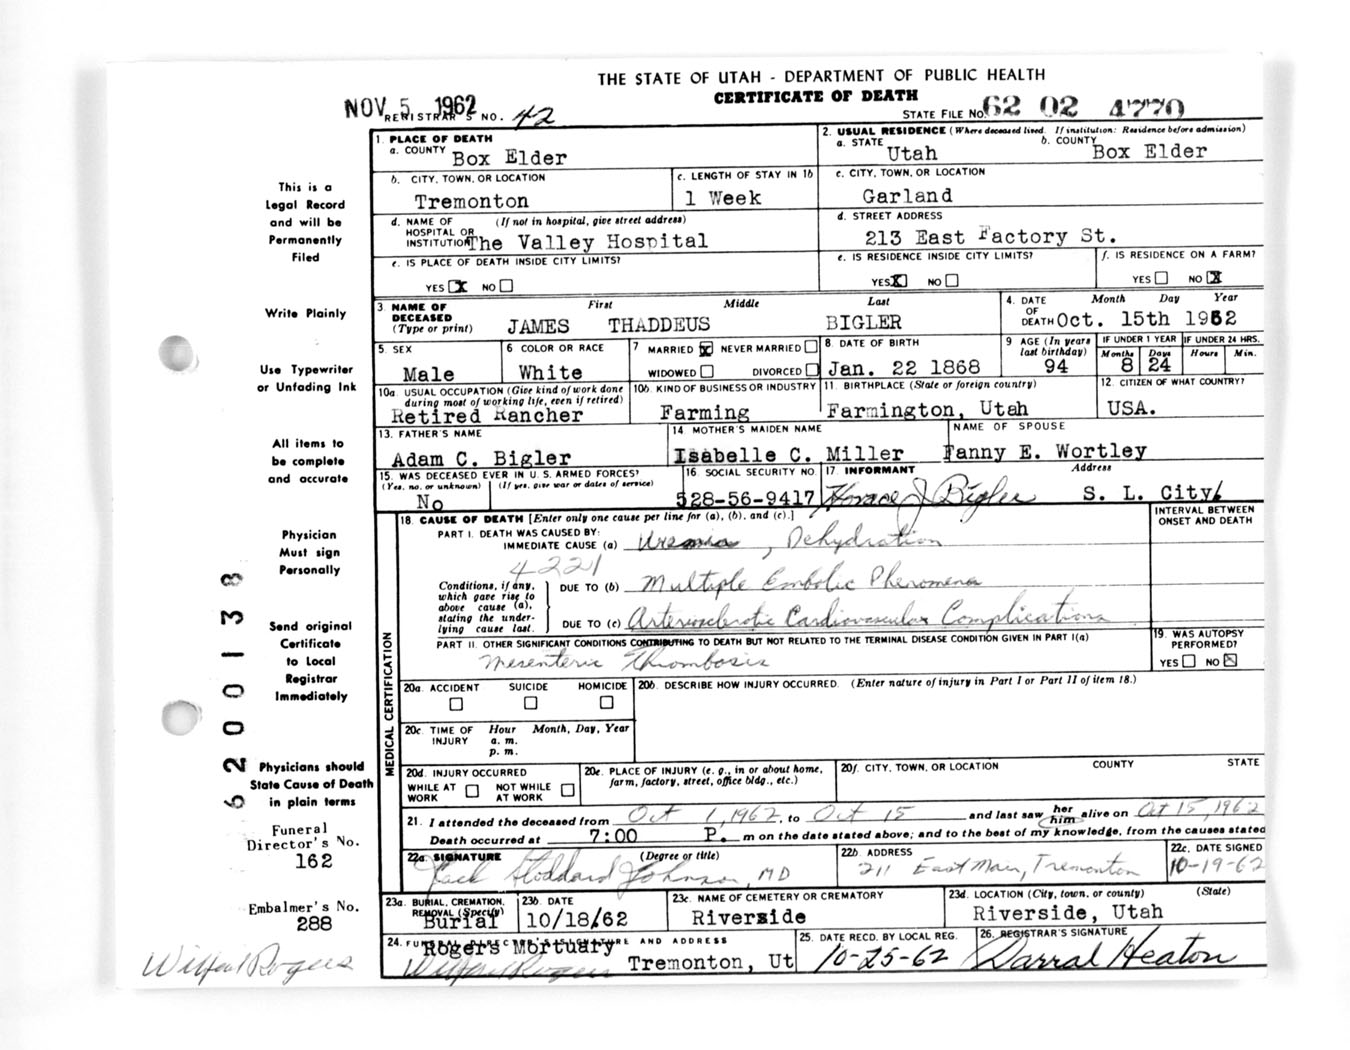 THE STATE OF UTAH - DEPARTMENT OF PUBLIC HEALTH
CERTIFICATE OF DEATH
NOV 5 1962
REGISTRAR'S NO. 42
STATE FILE NO. 62 02 4770
1. PLACE OF DEATH
a. COUNTY Box Elder
2. USUAL RESIDENCE (Where deceased lived. If institution: Residence before admission)
a. STATE Utah b. COUNTY Box Elder
b. CITY, TOWN, OR LOCATION Tremonton
c. LENGTH OF STAY IN 1b 1 Week
c. CITY, TOWN, OR LOCATION Garland
d. NAME OF HOSPITAL OR INSTITUTION (If not in hospital, give street address) The Valley Hospital
d. STREET ADDRESS 213 East Factory St.
e. IS PLACE OF DEATH INSIDE CITY LIMITS?
YES X NO
e. IS RESIDENCE INSIDE CITY LIMITS?
YES X NO
f. IS RESIDENCE ON A FARM?
YES NO X
3. NAME OF DECEASED (Type or print)
First Middle Last
JAMES THADDEUS BIGLER
4. DATE OF DEATH Month Day Year
Oct. 15th 1962
5. SEX Male
6 COLOR OR RACE White
7 MARRIED X NEVER MARRIED
WIDOWED DIVORCED
8. DATE OF BIRTH Jan. 22 1868
9 AGE (In years last birthday) 94
IF UNDER 1 YEAR Months 8 Days 24
IF UNDER 24 HRS. Hours Min.
10a. USUAL OCCUPATION (Give kind of work done during most of working life, even if retired)
Retired Rancher
10b. KIND OF BUSINESS OR INDUSTRY Farming
11. BIRTHPLACE (State or foreign country) Farmington, Utah
12. CITIZEN OF WHAT COUNTRY? USA.
13. FATHER'S NAME Adam C. Bigler
14 MOTHER'S MAIDEN NAME Isabelle C. Miller
NAME OF SPOUSE Fanny E. Wortley
15. WAS DECEASED EVER IN U. S. ARMED FORCES?
(Yes, no, or unknown) (If yes, give war or dates of service)
No
16. SOCIAL SECURITY NO. 528-56-9417
17. INFORMANT Address
Horace J Bigler S. L. City
18. CAUSE OF DEATH [Enter only one cause per line for (a), (b), and (c).]
INTERVAL BETWEEN ONSET AND DEATH
PART I. DEATH WAS CAUSED BY:
IMMEDIATE CAUSE (a) Uremia, Dehydration
4221
Conditions, if any, which gave rise to above cause (a), stating the underlying cause last.
DUE TO (b) Multiple Embolic Phenomena
DUE TO (c) Arteriosclerotic Cardiovascular Complications
PART II. OTHER SIGNIFICANT CONDITIONS CONTRIBUTING TO DEATH BUT NOT RELATED TO THE TERMINAL DISEASE CONDITION GIVEN IN PART I(a)
Mesenteric Thrombosis
19. WAS AUTOPSY PERFORMED?
YES NO X
20a. ACCIDENT SUICIDE HOMICIDE
20b. DESCRIBE HOW INJURY OCCURRED. (Enter nature of injury in Part I or Part II of item 18.)
20c. TIME OF INJURY Hour Month, Day, Year
a. m.
p. m.
20d. INJURY OCCURRED
WHILE AT WORK NOT WHILE AT WORK
20e. PLACE OF INJURY (e. g., in or about home, farm, factory, street, office bldg., etc.)
20f. CITY, TOWN, OR LOCATION COUNTY STATE
21. I attended the deceased from Oct 1, 1962, to Oct 15 and last saw her him alive on Oct 15, 1962
Death occurred at 7:00 P. m on the date stated above; and to the best of my knowledge, from the causes stated
22a. SIGNATURE (Degree or title)
Jack Stoddard Johnson, MD
22b. ADDRESS 211 East Main, Tremonton
22c. DATE SIGNED 10-19-62
23a. BURIAL, CREMATION, REMOVAL (Specify) Burial
23b. DATE 10/18/62
23c. NAME OF CEMETERY OR CREMATORY Riverside
23d. LOCATION (City, town, or county) (State)
Riverside, Utah
24. FUNERAL DIRECTOR'S SIGNATURE AND ADDRESS
Rogers Mortuary
Wilford Rogers Tremonton, Ut
25. DATE RECD. BY LOCAL REG. 10-25-62
26. REGISTRAR'S SIGNATURE Darral Heaton
MEDICAL CERTIFICATION
This is a
Legal Record
and will be
Permanently
Filed
Write Plainly
Use Typewriter
or Unfading Ink
All items to
be complete
and accurate
Physician
Must sign
Personally
Send original
Certificate
to Local
Registrar
Immediately
Physicians should
State Cause of Death
in plain terms
Funeral
Director's No.
162
Embalmer's No.
288
Wilford Rogers
62 00138